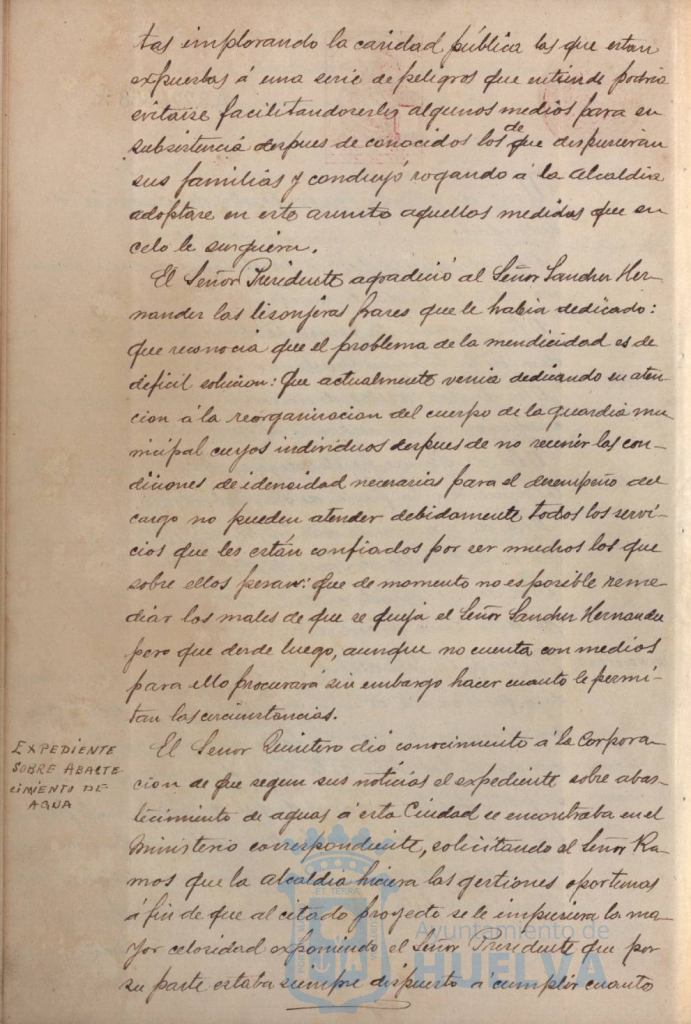 tas implorando la caridad pública las que estan
expuestas á una serie de peligros que entiende podria
evitarse facilitandoserles algunos medios para su
subsistencia despues de conocidos los de que dispusieran
sus familias y concluyó rogando á la alcaldia
adoptase en este asunto aquellas medidas que su
celo le surguiera.
El Señor Presidente agradeció al Señor Sanchez Her-
nandez las lisonjeras frases que le habia dedicado:
que reconocia que el problema de la mendicidad es de
dificil solucion: que actualmente venia dedicando su aten-
cion á la reorganizacion del cuerpo de la guardia mu
nicipal cuyos individuos despues de no reunir las con-
diciones de idensidad necesarias para el desempeño del
cargo no pueden atender debidamente todos los servi-
cios que les están confiados por ser muchos los que
sobre ellos pesan: que de momento no es posible reme-
diar los males de que se queja el Señor Sanchez Hernandez
pero que desde luego, aunque no cuenta con medios
para ello procurará sin embargo hacer cuanto le permi-
tan las circunstancias.
EXPEDIENTE
SOBRE ABASTE
CIMIENTO DE
AGUA
El Señor Quintero dió conocimiento á la Corpora-
cion de que segun sus noticias el expediente sobre abas-
tecimiento de aguas á esta Ciudad se encontraba en el
Ministerio correspondiente, solicitando el Señor Ra-
mos que la alcaldia hiciera las gestiones oportunas
á fin de que al citado proyecto se le impusiera la ma-
yor celosidad exponiendo el Señor Presidente que por
su parte estaba siempre dispuesto á cumplir cuanto
Ayuntamiento de
HUELVA